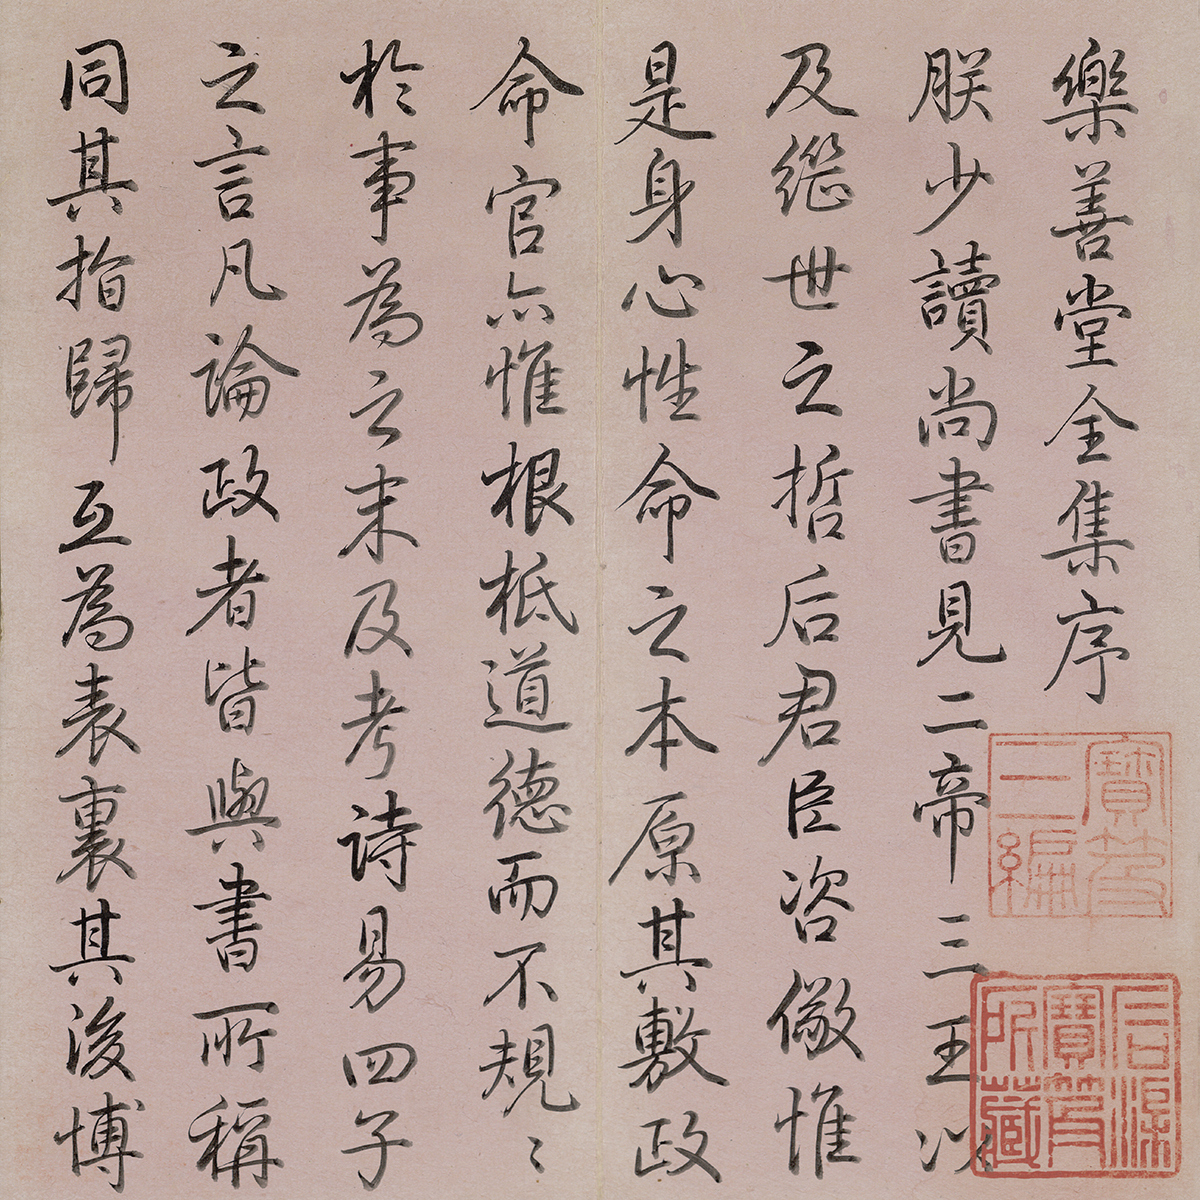 樂善堂全集序
朕少讀尚書見二帝三王以
及繼世之哲后君臣咨儆惟
是身心性命之本原其敷政
命官亦惟根柢道德而不規〻
於事為之末及考詩易四子
之言凡論政者皆與書所稱
同其指歸互為表裏其後博
寶笈三編
石渠寶笈所藏